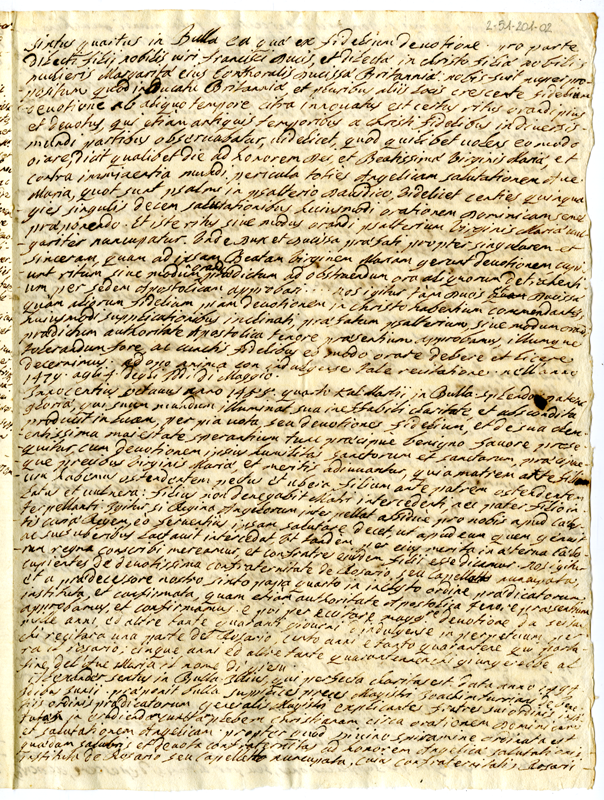 2-51-201-02
sixtus quartus in Bulla ea qua ex fidelium devotione pro parte
dilecti filij nobilis viri francisci Ducis, et dilecta in christo filia nobilis
mulieris Margarita eius Conthoralis Ducissa Britannia nobis fuit nuper pro-
positum quod in Ducatu Britannia, et pluribus alijs locis crescente fidelium
devotione ab aliquo tempore citra innovatus est certus ritus orandi pius
et devotus, qui etiam antiquis temporibus a christi fidelibus in diversis
mundi partibus observabatur, videlicet, quod quilibet volens eo modo
orare, dicit qualibet die ad honorem Dei, et Beatissima Virginis Maria, et
contra imminentia mundi pericula toties Angelicam salutationem Ave
Maria, quot sunt psalmi in psalterio Davidico, videlicet centies quinqua
gies singulis decem salutationibus huiusmodi orationem Dominicam semel
praeponendo. Et iste ritus, sive modus orandi psalterium Virginis Maria vul
gariter nuncupatur. Unde Dux et Ducissa prafati propter singularem et
sinceram, quam ad ipsam Beatam Virginem Mariam gerunt devotionem cupi
unt ritum, sive modum pradictum ad obstruendum ora aliquorum detrahenti
um per sedem Apostolicam approbari: nos igitur tam Ducis quam Ducissa
quam aliorum fidelium piam devotionem in christo habentium commendantes,
huiusmodi supplicationibus inclinati, prafatum psalterium, sive modum orandi
pradictum authoritate Apostolica tenore prasentium approbamus, illumque
tolerandum fore, ac cunctis fidelibus eo modo orare debere et licere
decernimus anima con indulgenze tale recitatione. nell anno
1479. agli 9 degli Idi di Maggio.
Innocentius octavus anno 1485. quarto Kal: Martij in Bulla splendor paterna
gloria, qui suum mundum illuminat sua ineffabili claritate, et abscondita
producit in lucem, per pia vota, seu devotiones fidelium, et de sua clem-
entissima maiestate sperantium tunc pracipue benigno favore prose
quitur, cum devotionem ipsius humilitas sanctorum et sanctarum, pracipue
que precibus Virginis Maria et meritis adiuvantur, quia matrem ante filium
cum habemus ostendentem pectus et ubera, filium ante patrem ostendente
latus et vulnera: filius non denegabit Matri intercedenti, nec pater filio in-
terpellanti. Igitur si Regina Angelorum interpellat assidue pro nobis apud Cales-
tis curia Regem, eo ferventius ipsam salutare decet, ut apud eum quem genuit
ac suis uberibus lactavit intercedat, ut tandem per eius merita in aterna calo
rum regna conscribi mereamur, et confratres eiusdem filij esse dicamur. Nos igitur
cupientes devotissima confraternitate de Rosario, seu Cappelletto nuncupatas
et a pradecessore nostro sixto papa quarto in inclyto ordine pradicatorum
instituta, et confirmata, quam etiam authoritate Apostolica tenore prasentium
approbamus, et confirmamus. e poi per eccitare maggiore devotione da sessan
mille anni, ed altre tante quarant indulgenze in perpetuum, per
chi recitara una parte del Rosario, cento anni e tante quarantene chi porta
ra il rosario: cinque anni ed altre tante quarantene chi giungerebbe al
fine dell Ave Maria il nome di Giesu.
Alexander sextus in Bulla Illius, qui perfecta claritas est data anno 1494
idibus Junij. praponit sulla supplices preces Magistri Joachim turriani
ordinis pradicatorum generalis Magistri explicante fratres sui ordinis
in erudiendo plebem christianam circa orationem Dominicam
et salutationem Angelicam: propter quod divino spiramine ordinata est
quadam salubris et devota confraternitas ad honorem Angelica salutationis
instituta de Rosario seu Cappelletto nuncupata, cuius confraternitatis Rosarij